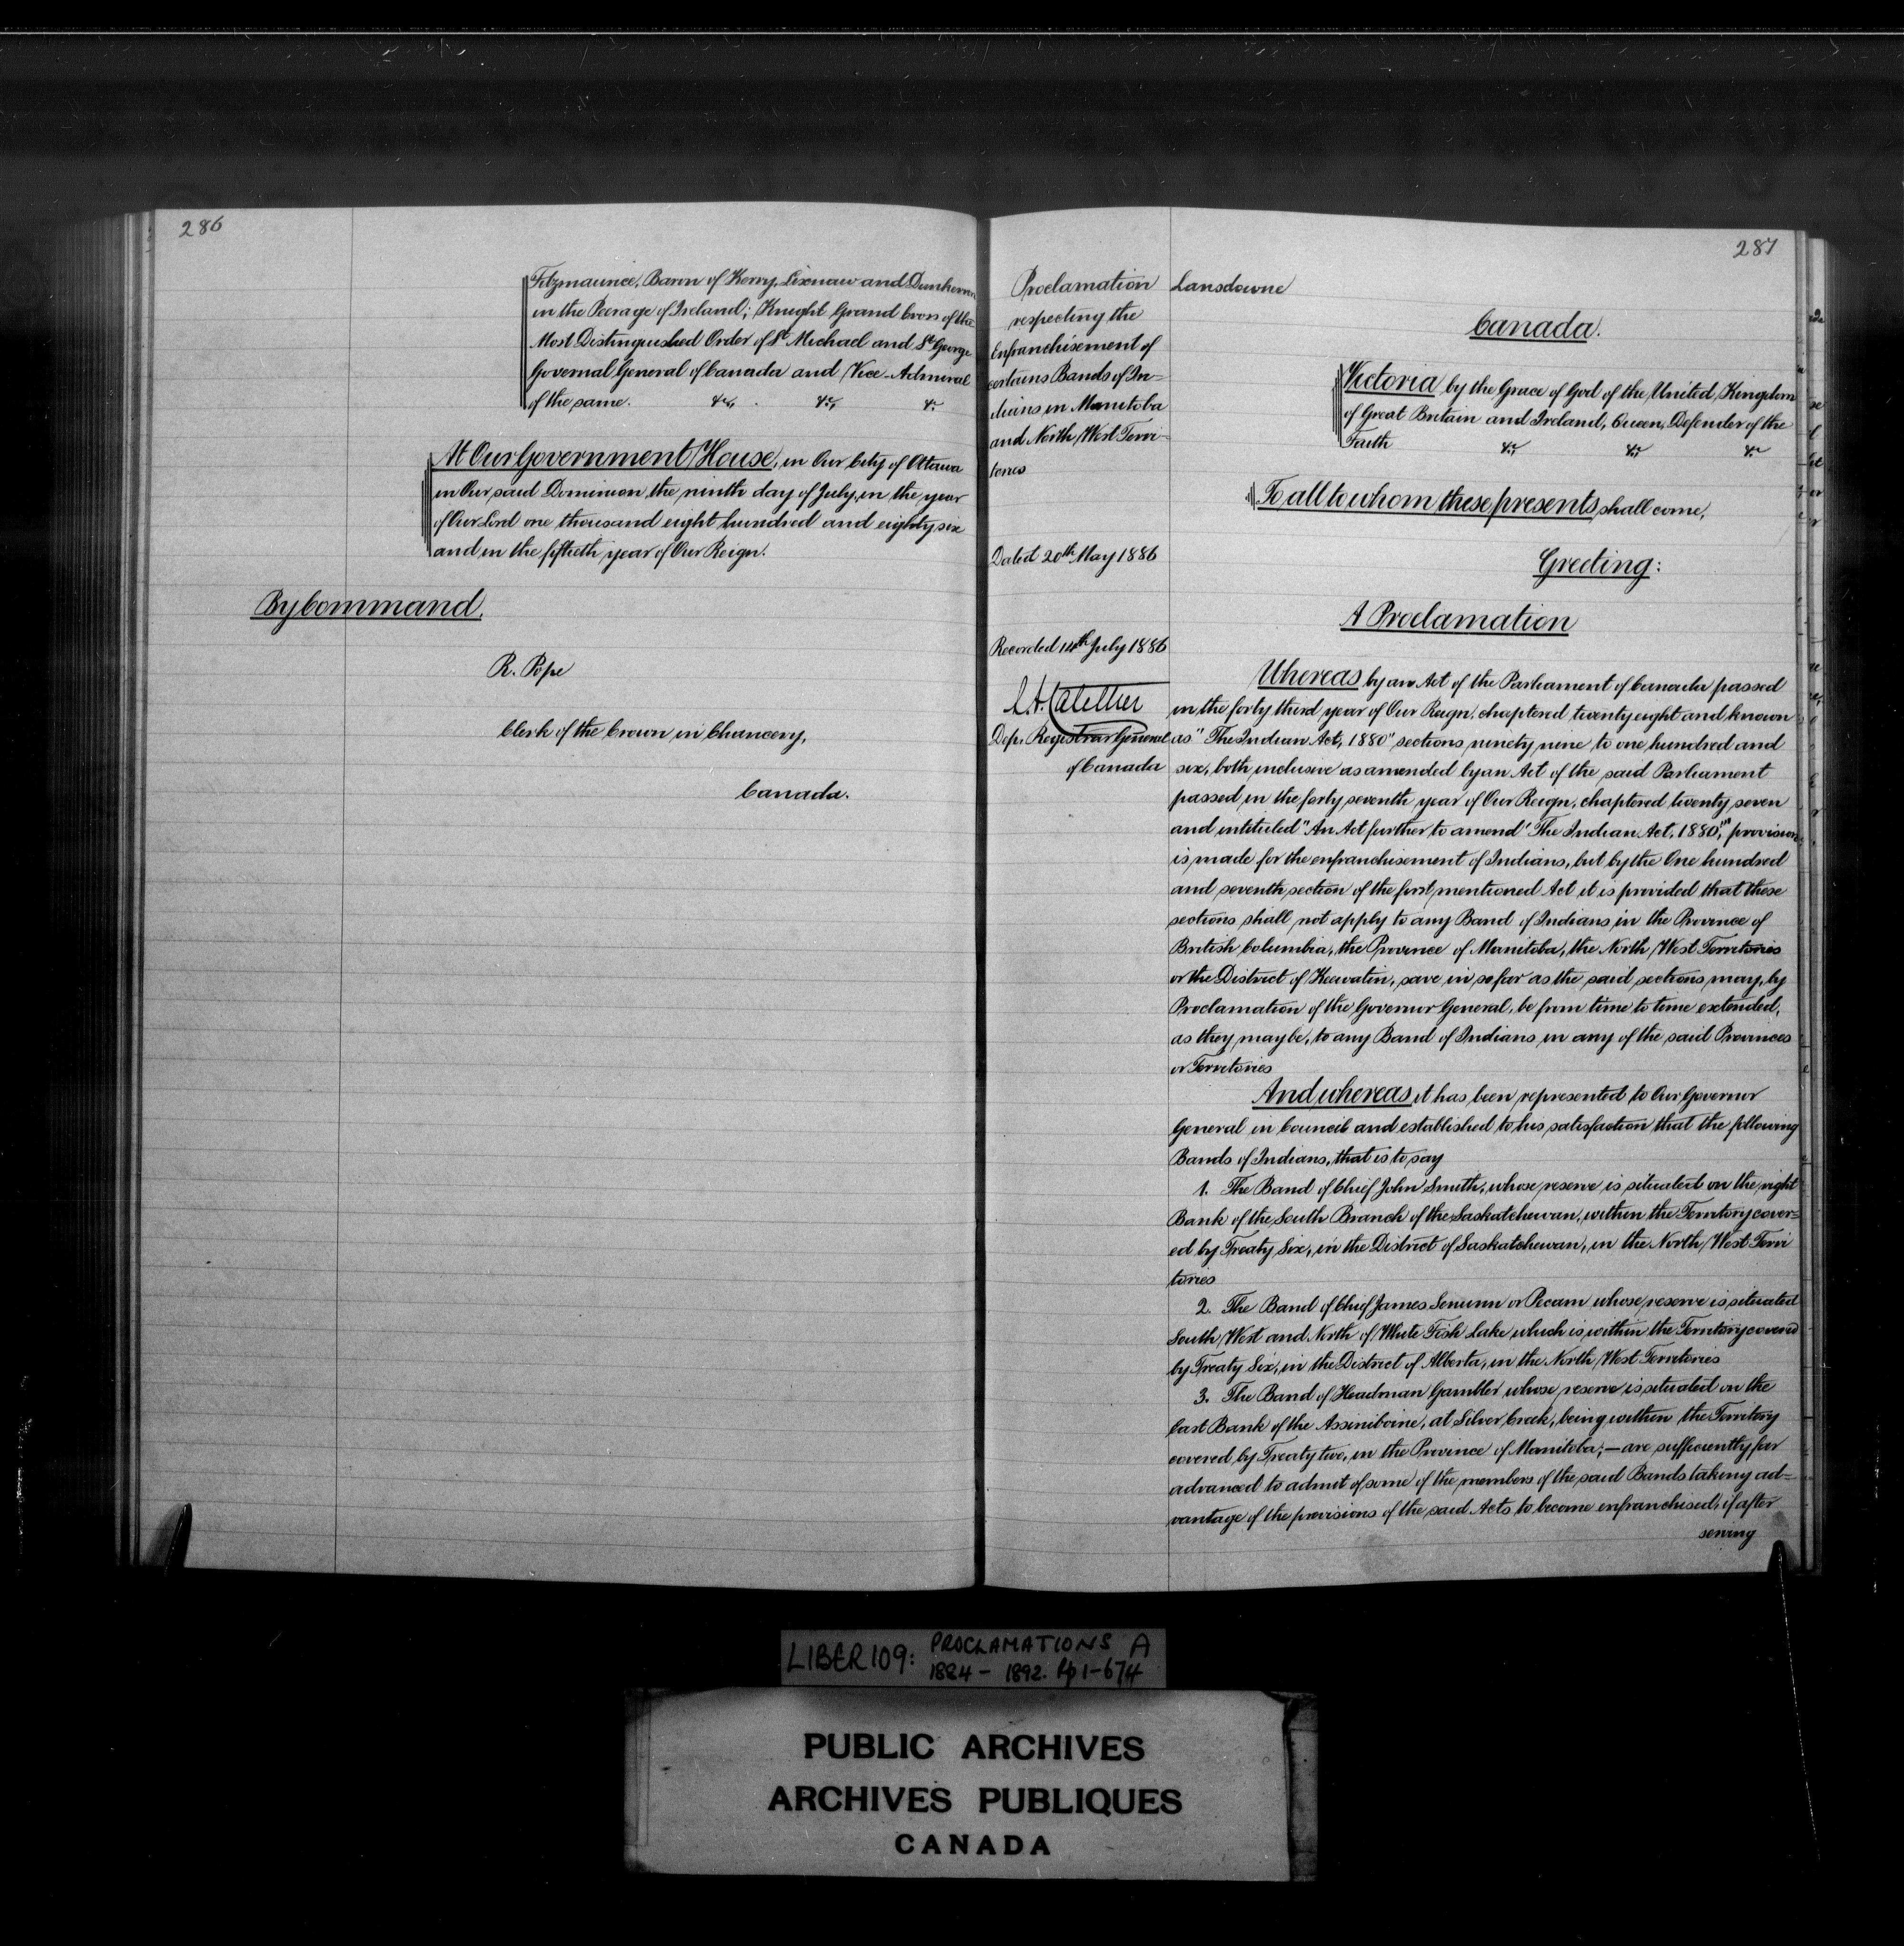 286
Fitzmaurice, Baron of Kerry, Lixnaw and Dunkerron
in the Peerage of Ireland; Knight Grand Cross of the
Most Distinguished Order of St Michael and St George
Governal General of Canada and Vice-Admiral
of the same. &c, &c, &c
At Our Government House, in Our City of Ottawa
in Our said Dominion, the ninth day of July, in the year
of Our Lord one thousand eight hundred and eighty six
and in the fiftieth year of Our Reign.
By Command.
R. Pope
Clerk of the Crown in Chancery,
Canada.
287
Proclamation
respecting the
Enfranchisement of
certains Bands of In=
dians in Manitoba
and North West Terri-
tories
Dated 20th May 1886
Recorded 14th July 1886
Dep. Registrar General
of Canada
Lansdowne
Canada.
Victoria by the Grace of God of the United Kingdom
of Great Britain and Ireland, Queen, Defender of the
Faith &c, &c, &c
To all to whom these presents shall come,
Greeting:
A Proclamation
Whereas by an Act of the Parliament of Canada passed
in the forty third year of Our Reign, chaptered twenty eight and known
as "The Indian Act, 1880" sections ninety nine to one hundred and
six, both inclusive as amended by an Act of the said Parliament
passed in the forty seventh year of Our Reign, chaptered twenty seven
and intituled "An Act further to amend 'The Indian Act, 1880,'" provision
is made for the enfranchisement of Indians, but by the One hundred
and seventh section of the first mentioned Act it is provided that these
sections shall not apply to any Band of Indians in the Province of
British Columbia, the Province of Manitoba, the North West Territories
or the District of Keewatin, save in so far as the said sections may, by
Proclamation of the Governor General, be from time to time extended,
as they may be, to any Band of Indians in any of the said Provinces
or Territories
And whereas it has been represented to Our Governor
General in Council and established to his satisfaction that the following
Bands of Indians, that is to say
1. The Band of Chief John Smith, whose reserve is situated on the right
Bank of the South Branch of the Saskatchewan, within the Territory cover=
ed by Treaty Six, in the District of Saskatchewan, in the North West Terri
tories
2. The Band of Chief James Senumn or Pecam whose reserve is situated
South, West and North of White Fish Lake which is within the Territory covered
by Treaty Six, in the District of Alberta, in the North West Territories
3. The Band of Headman Gambler whose reserve is situated on the
East Bank of the Assiniboine, at Silver Creek, being within the Territory
covered by Treaty two, in the Province of Manitoba; — are sufficiently far
advanced to admit of some of the members of the said Bands taking ad=
vantage of the provisions of the said Acts to become enfranchised, if after
serving
LIBER 109: PROCLAMATIONS A
1884 - 1892. Pp 1-674
PUBLIC ARCHIVES
ARCHIVES PUBLIQUES
CANADA